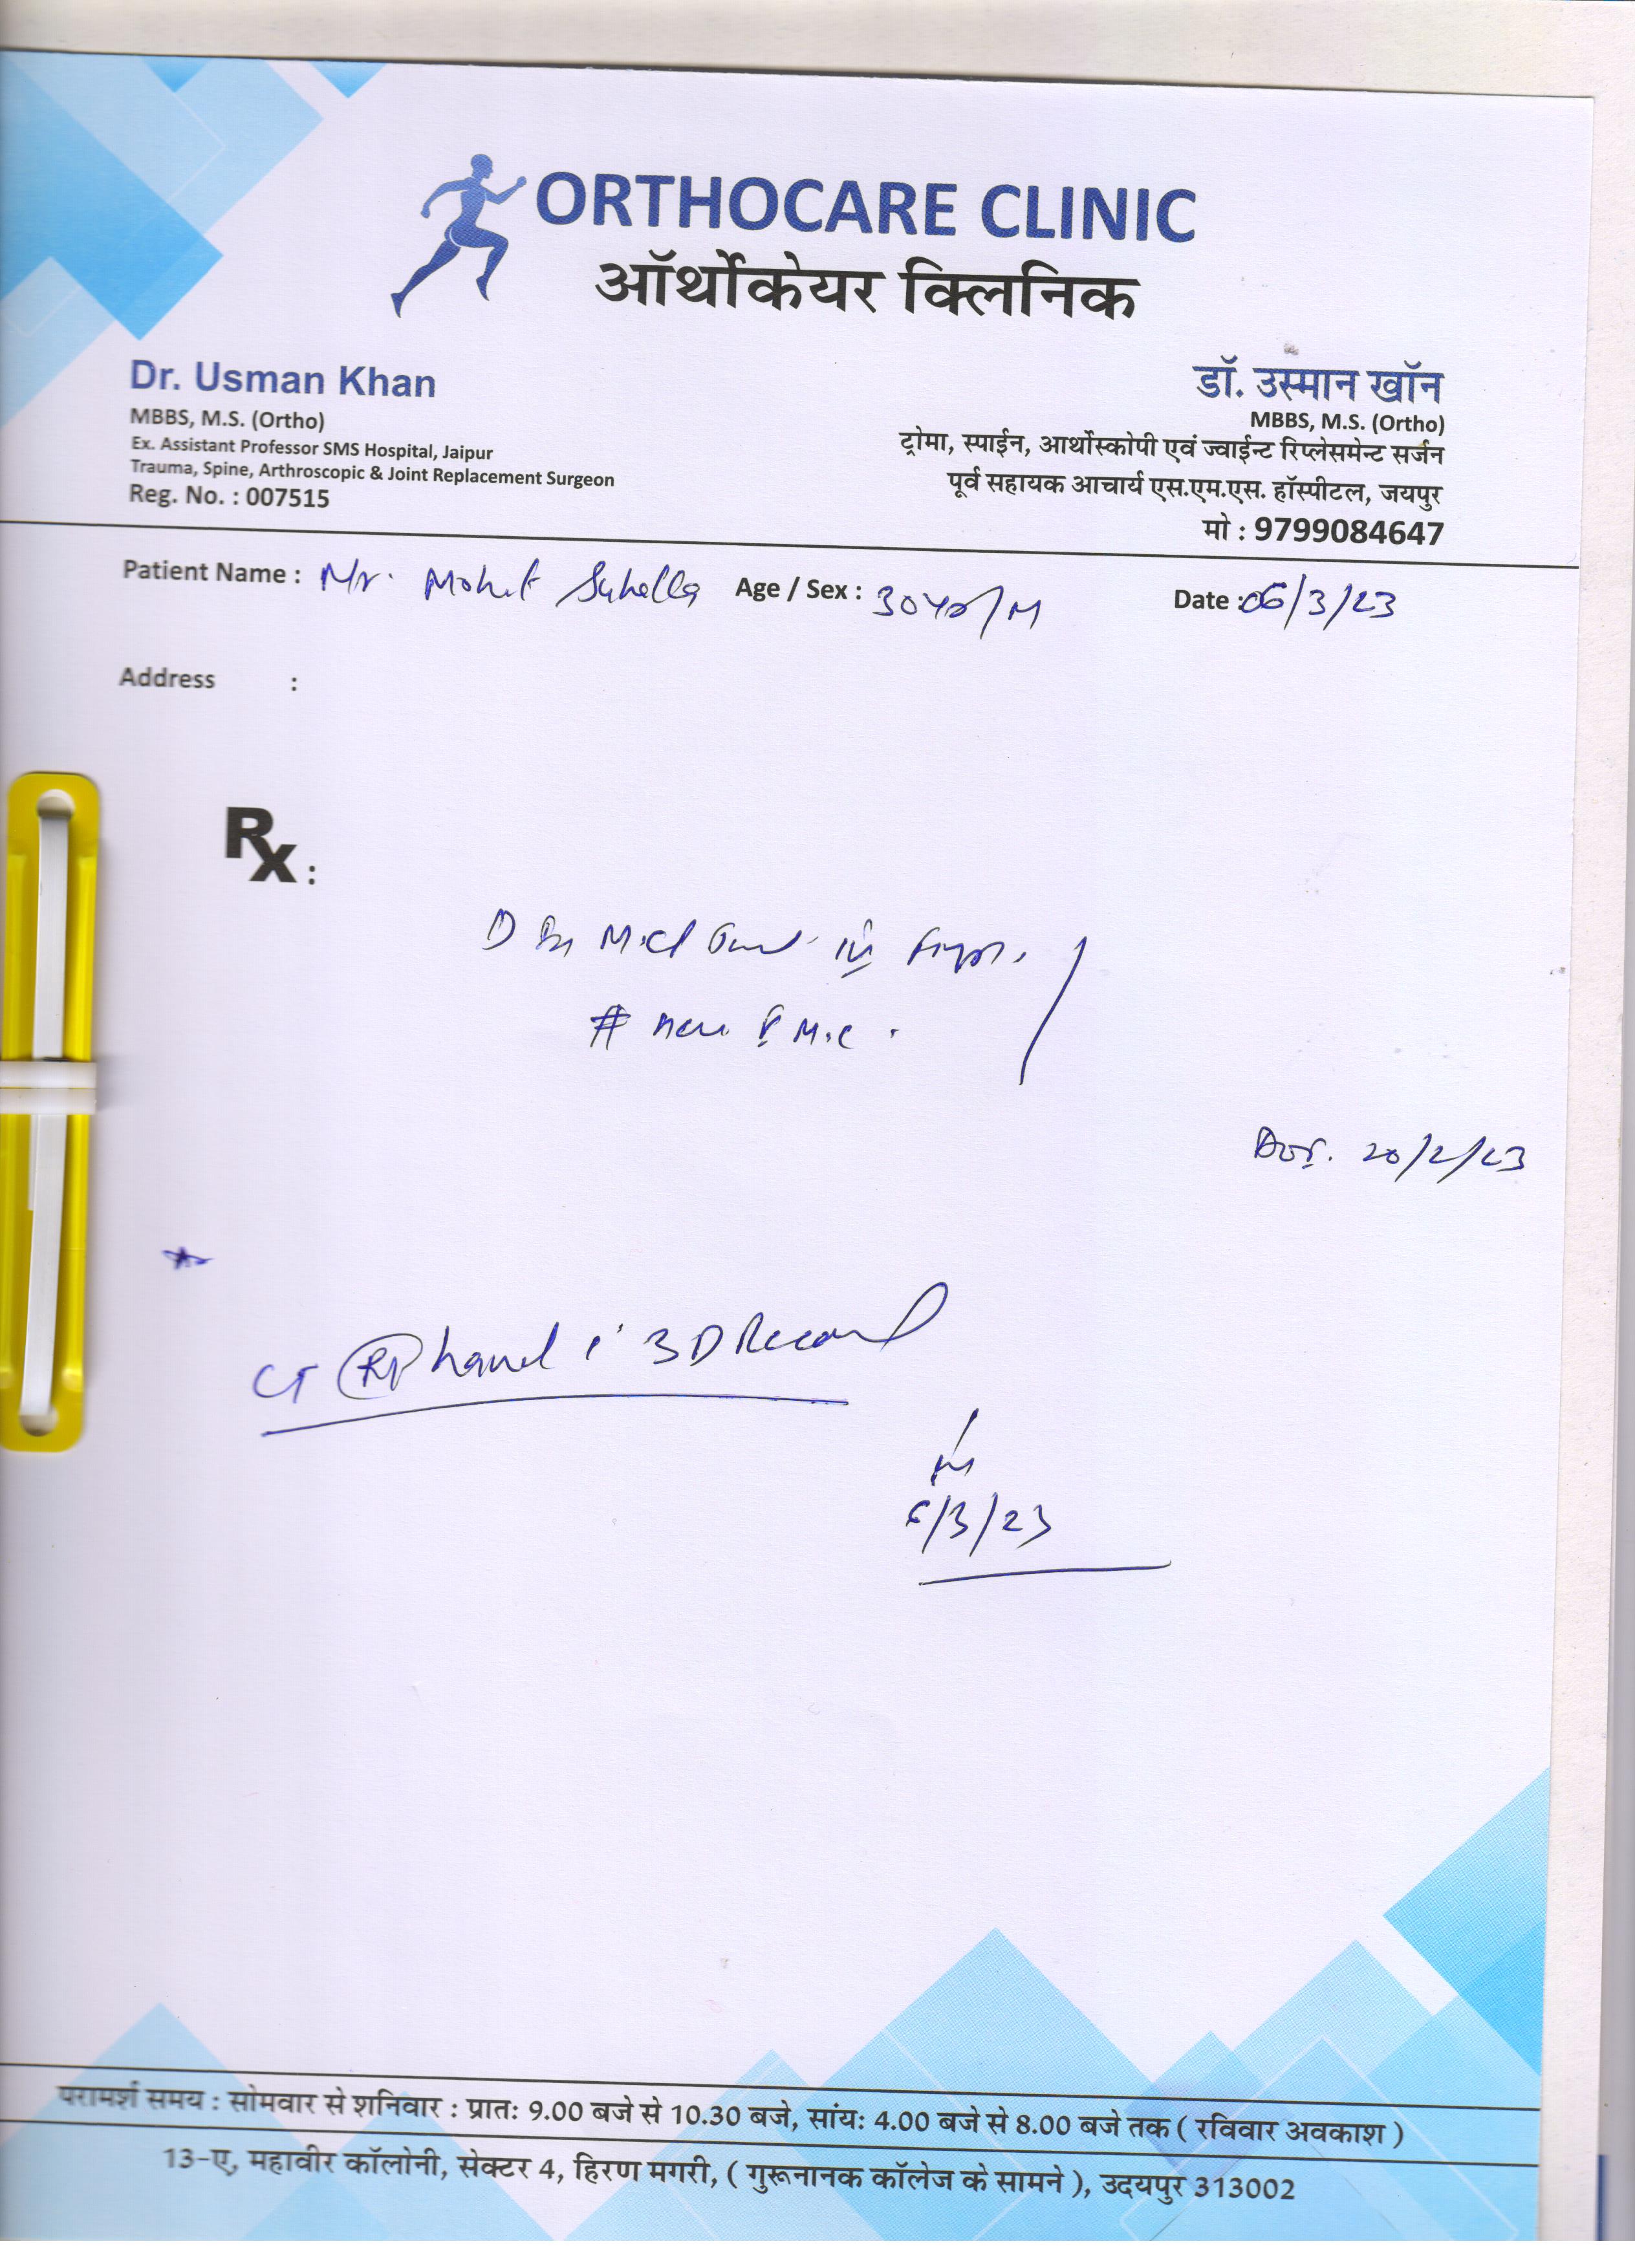 ORTHOCARE CLINIC
ऑर्थोकेयर क्लिनिक
Dr. Usman Khan
MBBS, M.S. (Ortho)
Ex. Assistant Professor SMS Hospital, Jaipur
Trauma, Spine, Arthroscopic & Joint Replacement Surgeon
Reg. No. : 007515
डॉ. उस्मान खॉन
MBBS, M.S. (Ortho)
ट्रोमा, स्पाईन, आर्थोस्कोपी एवं ज्वाईन्ट रिप्लेसमेन्ट सर्जन
पूर्व सहायक आचार्य एस.एम.एस. हॉस्पीटल, जयपुर
मो : 9799084647
Patient Name : Mr. Mohit Age / Sex : 30 Yr/M Date : 06/3/23
Address :
Rx :
# M.C.
20/2/23
CT Rt hand 3D Recon
6/3/23
परामर्श समय : सोमवार से शनिवार : प्रातः 9.00 बजे से 10.30 बजे, सांयः 4.00 बजे से 8.00 बजे तक ( रविवार अवकाश )
13-ए, महावीर कॉलोनी, सेक्टर 4, हिरण मगरी, ( गुरूनानक कॉलेज के सामने ), उदयपुर 313002